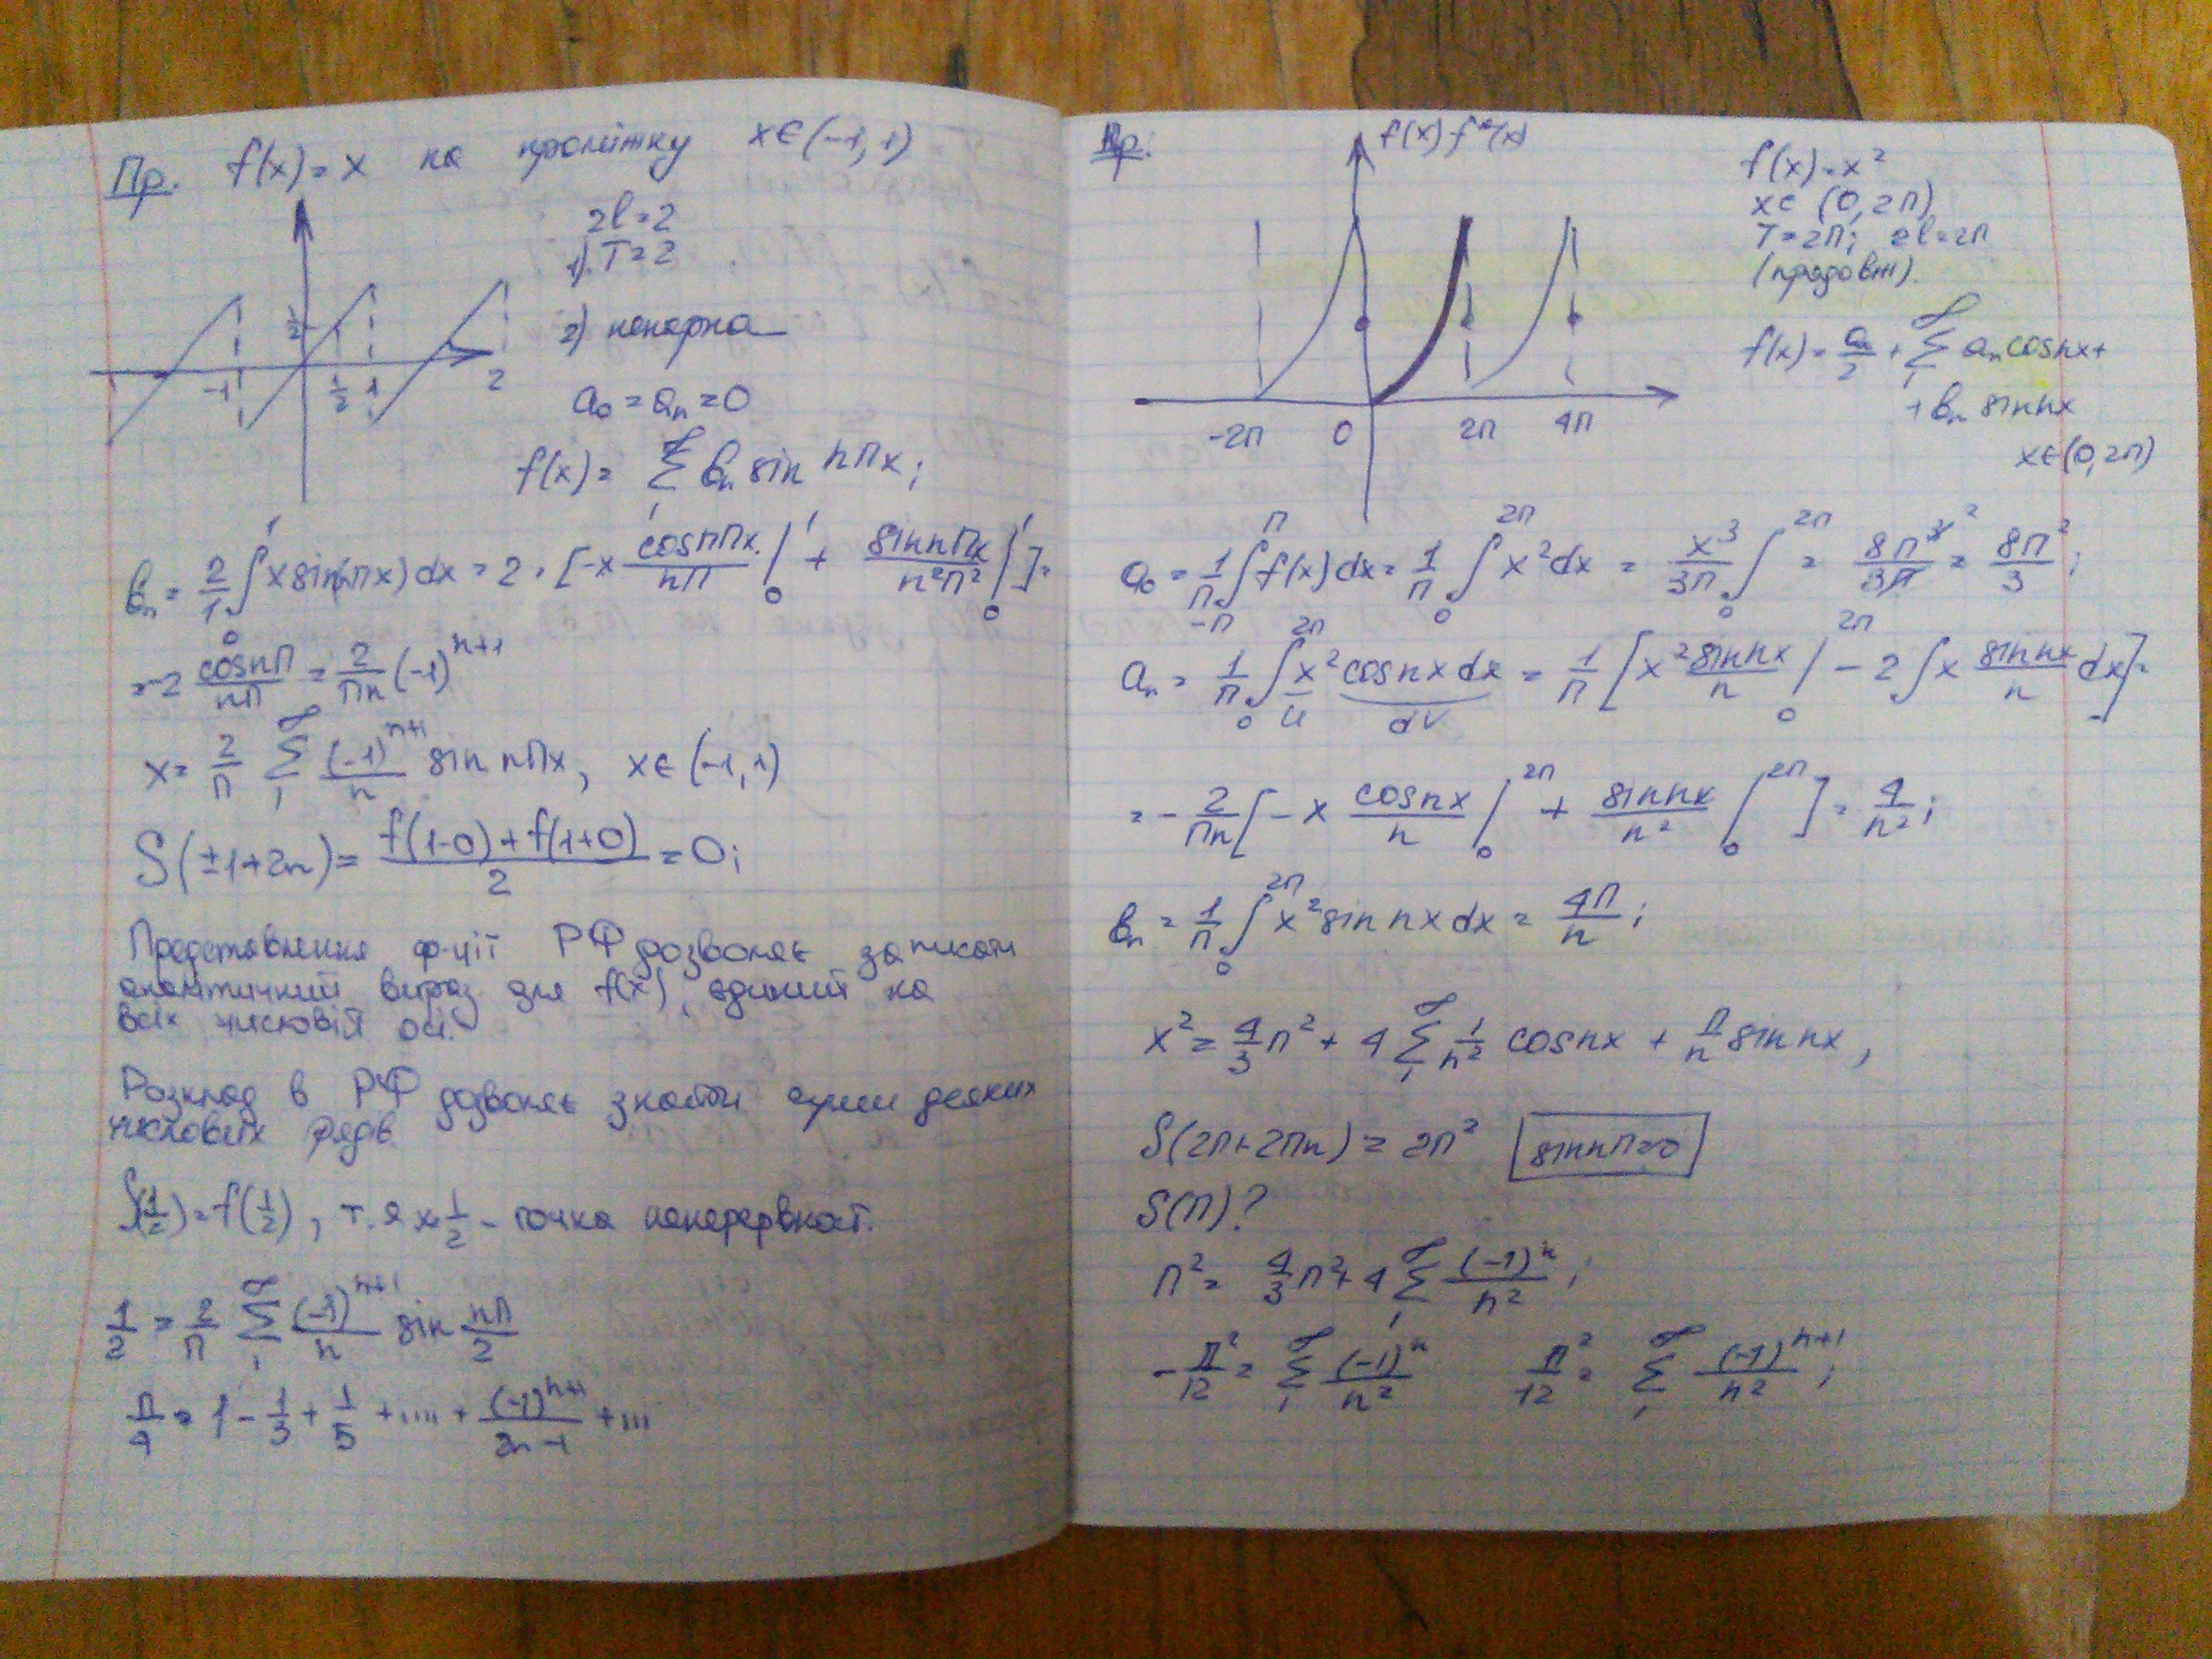 Пр. f(x)=x на проміжку x∈(-1,1)
2l=2
1). T=2
2) непарна
a₀=aₙ=0
½
-1 ½ 1 2
f(x)= ∑₁^∞ bₙ sin nπx;
bₙ= 2/1 ∫₀¹ x sin(nπx)dx = 2·[-x cosnπx/nπ |₀¹ + sinnπx/n²π² |₀¹]=
=-2 cosnπ/nπ = 2/πn (-1)ⁿ⁺¹
x= 2/π ∑₁^∞ (-1)ⁿ⁺¹/n sin nπx, x∈(-1,1)
S(±1+2n)= (f(1-0)+f(1+0))/2 =0;
Представлення ф-ції РФ дозволяє записати
аналітичний вираз для f(x), єдиний на
всій числовій осі.
Розклад в РФ дозволяє знайти суми деяких
числових рядів
S(½)=f(½), т.я x=½ - точка неперервност.
1/2 = 2/π ∑₁^∞ (-1)ⁿ⁺¹/n sin nπ/2
π/4 = 1 - 1/3 + 1/5 + .... + (-1)ⁿ⁺¹/(2n-1) + ...
Пр:
f(x) f*(x)
-2π 0 2π 4π
f(x)=x²
x∈ (0,2π)
T=2π; 2l=2π
(продовж).
f(x)= a₀/2 + ∑₁^∞ aₙ cosnx+
+bₙ sinnx
x∈(0,2π)
a₀ = 1/π ∫₋π^π f(x)dx = 1/π ∫₀^2π x²dx = x³/3π ∫₀^2π = 8π³/3π = 8π²/3;
aₙ = 1/π ∫₀^2π x² cosnx dx = 1/π [x² sinnx/n |₀^2π - 2∫x sinnx/n dx]=
u dv
= - 2/πn [-x cosnx/n |₀^2π + sinnx/n² |₀^2π] = 4/n²;
bₙ = 1/π ∫₀^2π x² sin nx dx = 4π/n;
x² = 4/3 π² + 4 ∑₁^∞ 1/n² cosnx + π/n sin nx,
S(2π+2πn) = 2π² sinnπ=0
S(π)?
π² = 4/3 π² + 4 ∑₁^∞ (-1)ⁿ/n²;
-π²/12 = ∑₁^∞ (-1)ⁿ/n² π²/12 = ∑₁^∞ (-1)ⁿ⁺¹/n²;